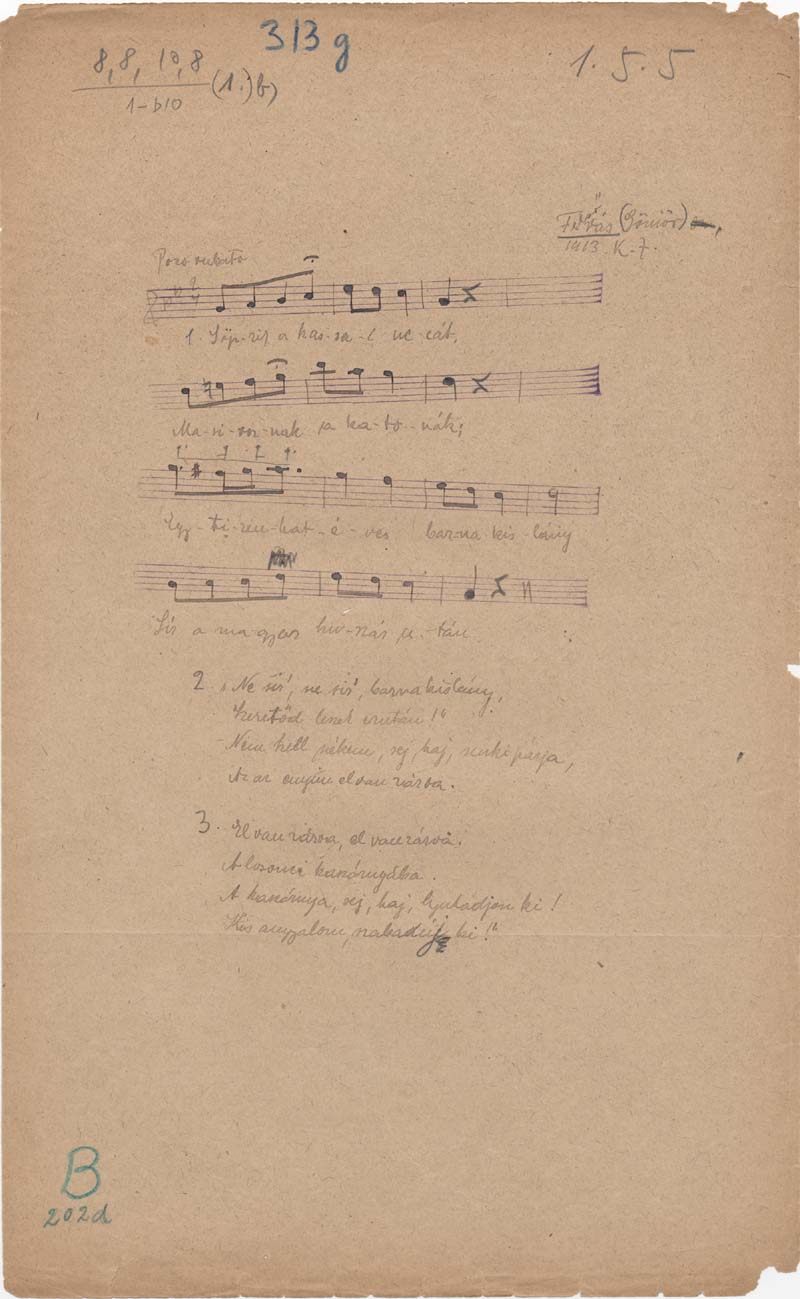 313 g
8, 8, 10, 8
1-b10
(1.) b)
1. 5. 5
(Gömör)
1913 K. Z.
Poco rubato
1. Söp-rik a kas-sa-i uc-cát,
Ma-si-roz-nak a ka-to-nák;
Egy ti-zen-hat-é-ves barna kis-lány
Sír a ma-gyar hu-szár u-tán.
2. „Ne sírj, ne sírj, barna kislány,
Szeretőd leszek ezután!"
Nem kell nékem, sej, haj, senki párja,
Az az enyim el van zárva.
3. El van zárva, el van zárva.
A losonci kaszárnyába.
A kaszárnya, sej, haj, lyukadjon ki!
Kis angyalom, szabadulj ki!"
B
202d